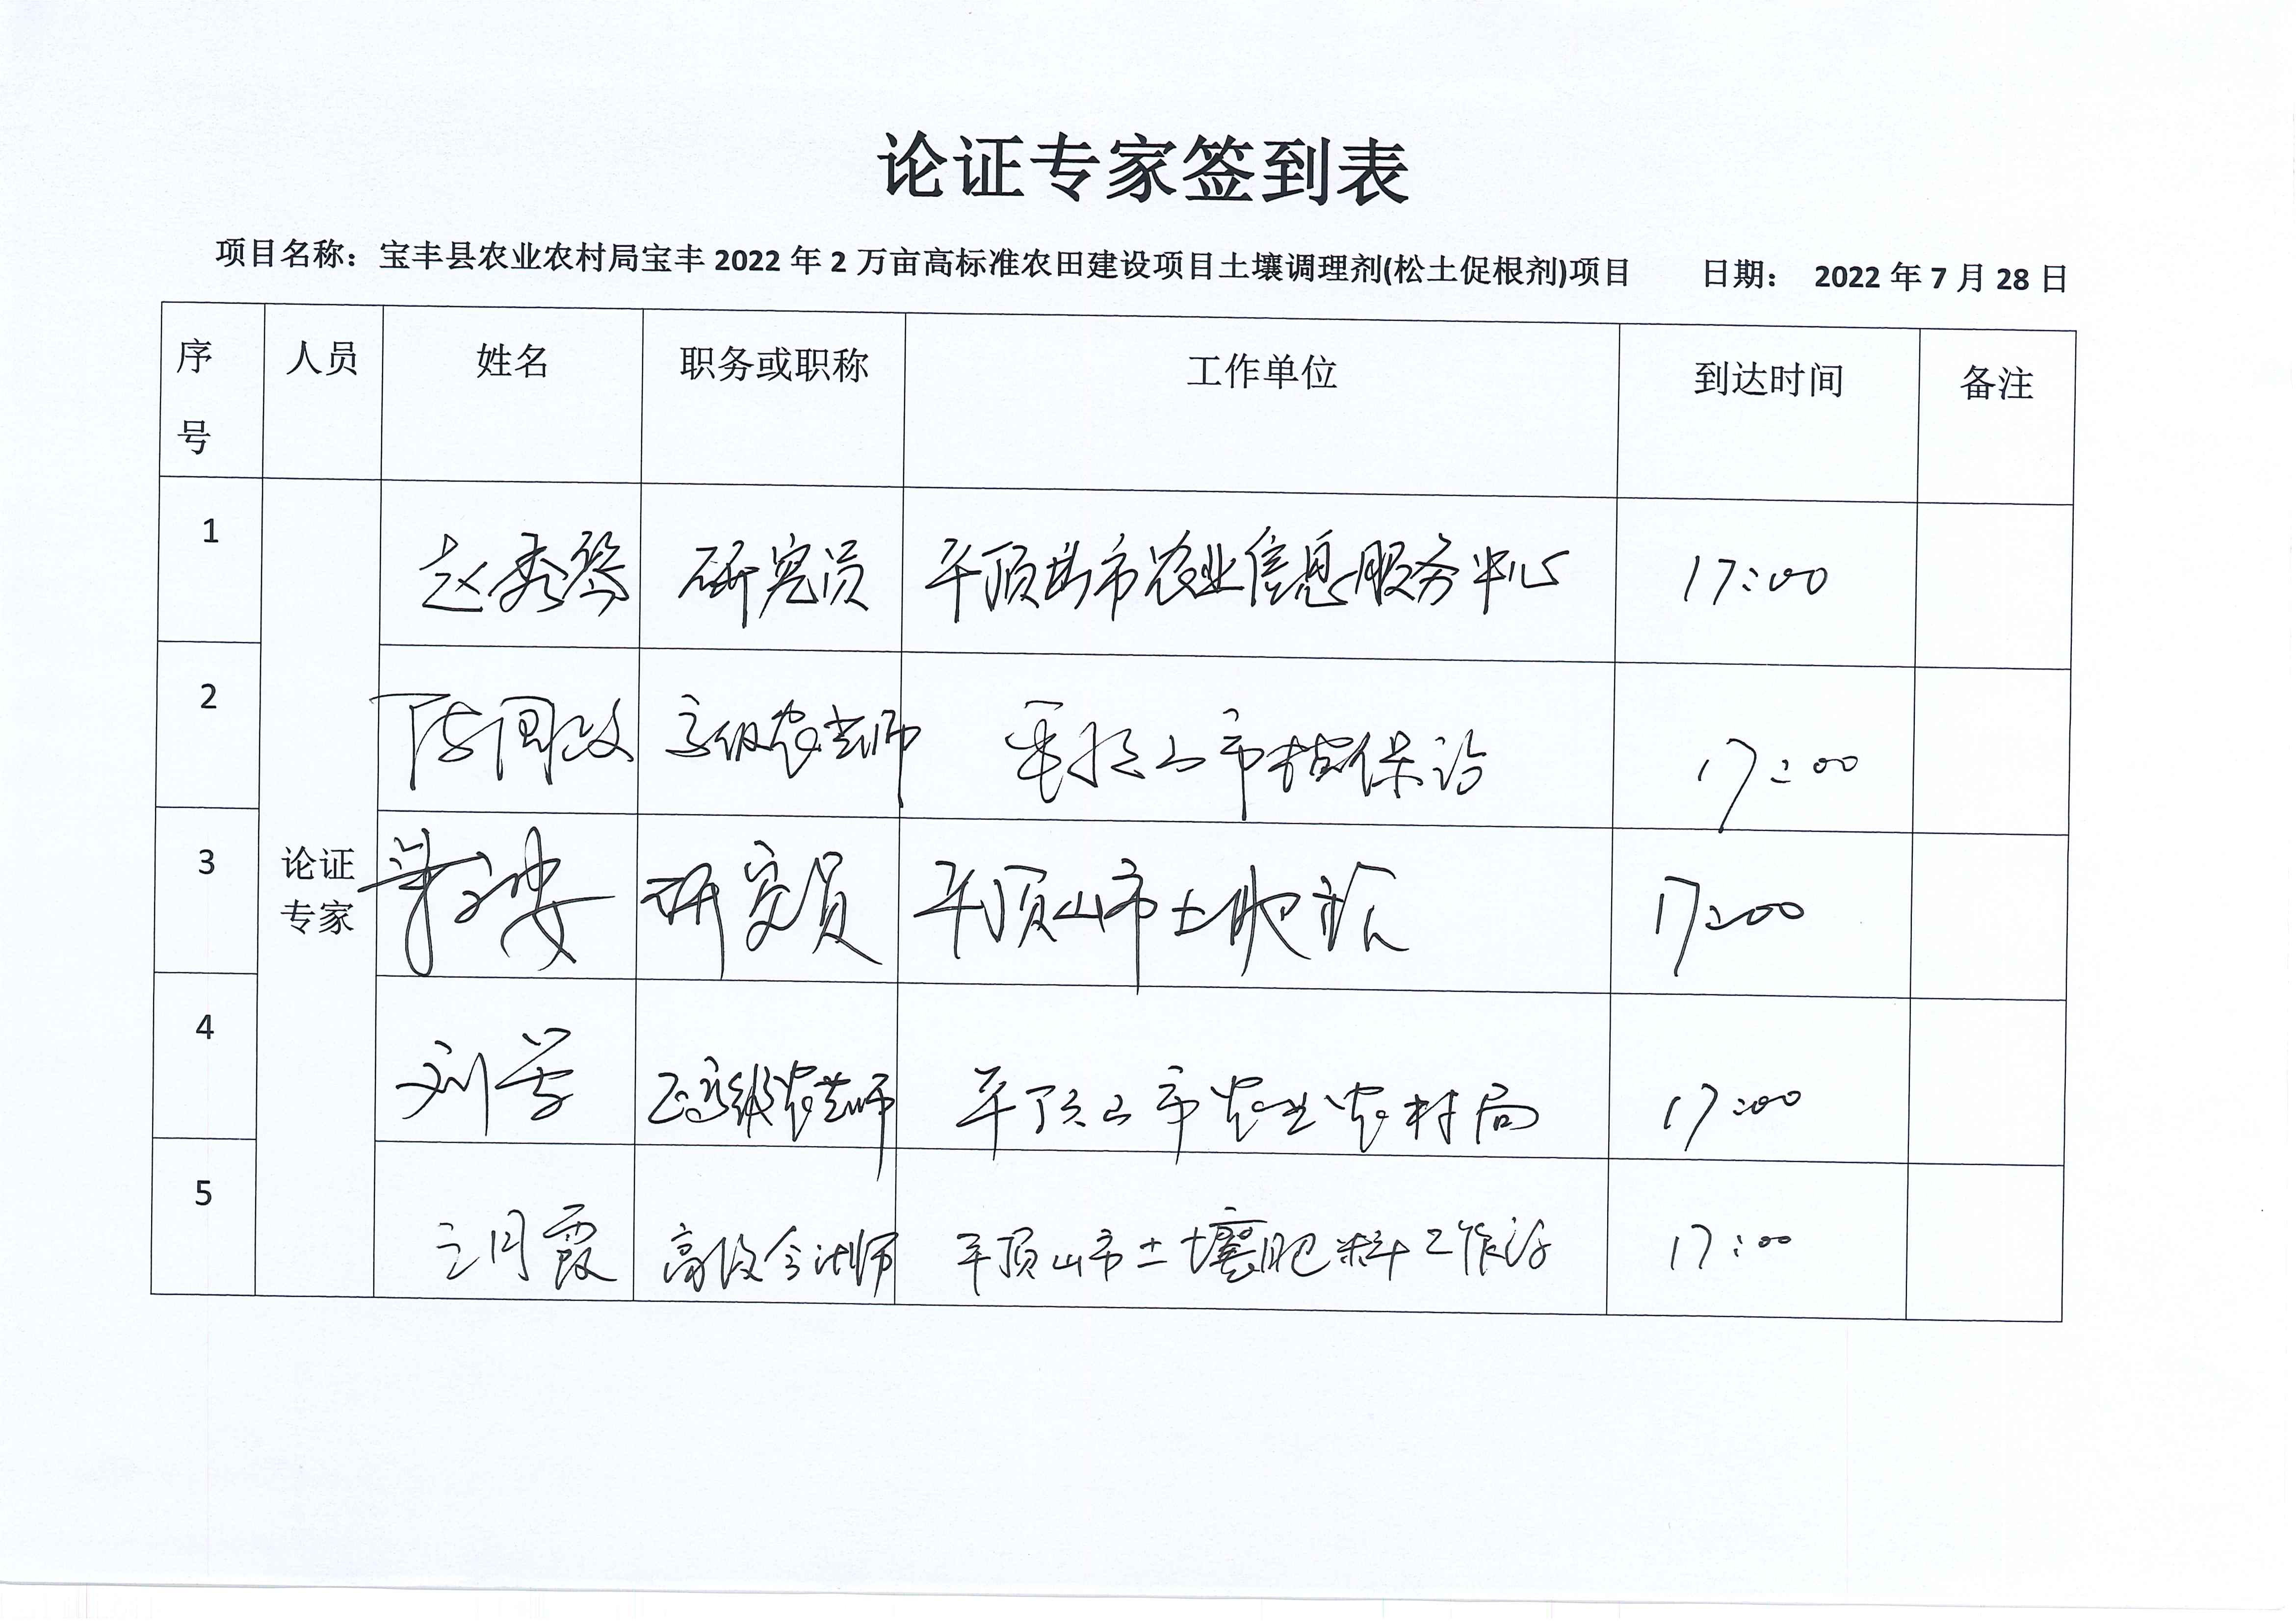 论证专家签到表
项目名称：宝丰县农业农村局宝丰 2022 年 2 万亩高标准农田建设项目土壤调理剂(松土促根剂)项目 日期： 2022 年 7 月 28 日
序号 人员 姓名 职务或职称 工作单位 到达时间 备注
论证专家
1 赵秀琴 研究员 平顶山市农业信息服务中心 17:00
2 高级农艺师 平顶山市植保站 17:00
3 研究员 平顶山市土肥站 17:00
4 刘学 正高级农艺师 平顶山市农业农村局 17:00
5 月霞 高级会计师 平顶山市土壤肥料工作站 17:00